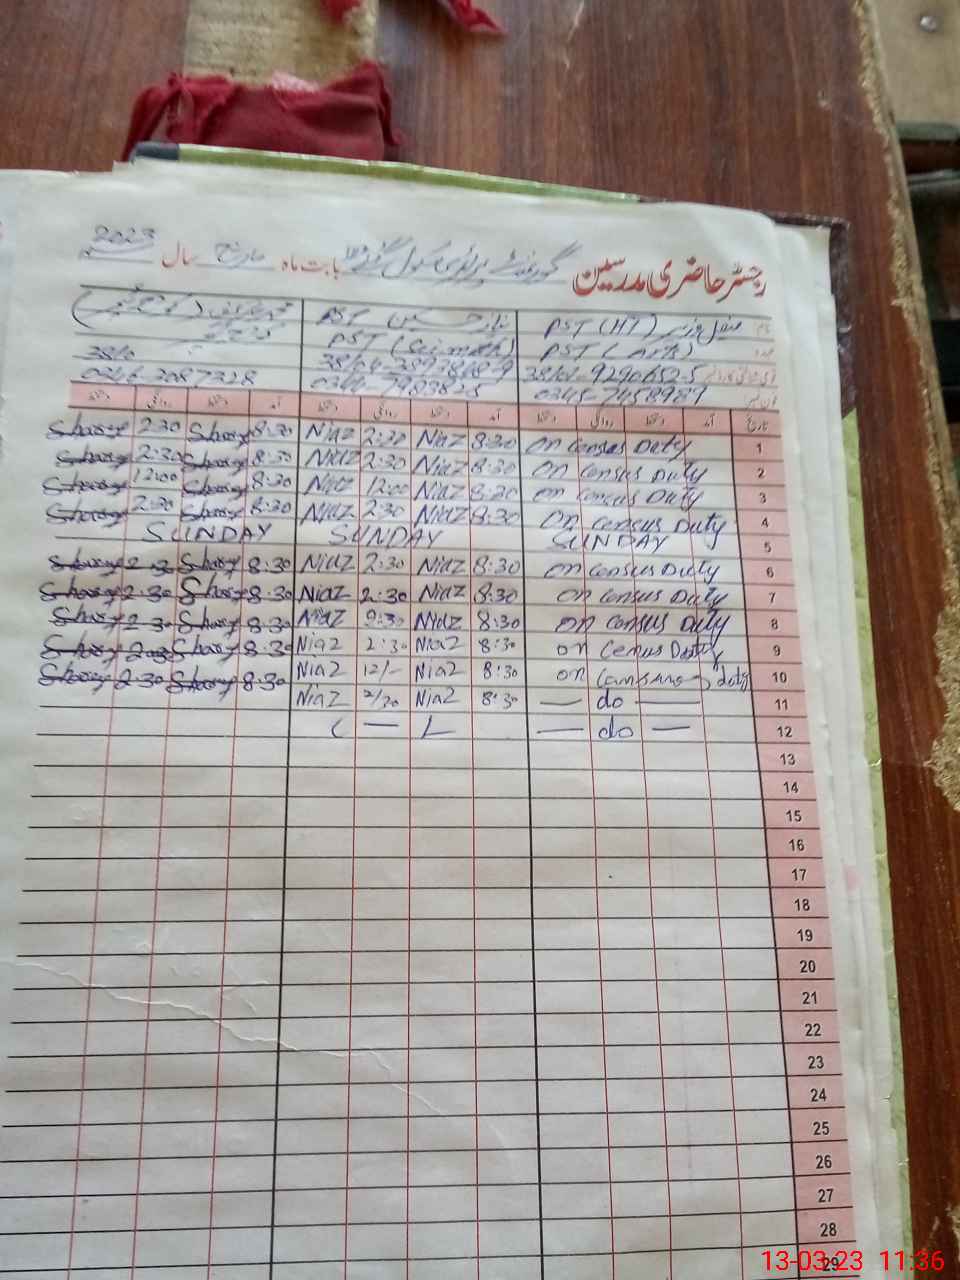 رجسٹر حاضری مدرسین گورنمنٹ پرائمری سکول بابت ماہ مارچ سال 2023
نام PST (HT) PST
عہدہ PST (Arts) PST (Sci.math)
0345-7458989 0346-3087328
تاریخ آمد دستخط روانگی دستخط آمد دستخط روانگی دستخط آمد دستخط روانگی دستخط
Shoay 2:30 Shoay 8:30 Niaz 2:30 Niaz 8:30 on census Duty 1
Shoay 2:30 Shoay 8:30 Niaz 2:30 Niaz 8:30 on census Duty 2
Shoay 12:00 Shoay 8:30 Niaz 12:00 Niaz 8:30 on census Duty 3
Shoay 2:30 Shoay 8:30 Niaz 2:30 Niaz 8:30 on census Duty 4
SUNDAY SUNDAY SUNDAY 5
Shoay 2:30 Shoay 8:30 Niaz 2:30 Niaz 8:30 on census Duty 6
Shoay 2:30 Shoay 8:30 Niaz 2:30 Niaz 8:30 on census Duty 7
Shoay 2:30 Shoay 8:30 Niaz 2:30 Niaz 8:30 on census Duty 8
Shoay 2:30 Shoay 8:30 Niaz 2:30 Niaz 8:30 on Census Duty 9
Shoay 2:30 Shoay 8:30 Niaz 12/- Niaz 8:30 on duty 10
Niaz 2/30 Niaz 8:30 — do — 11
— do — 12
13
14
15
16
17
18
19
20
21
22
23
24
25
26
27
28
29
13-03-23 11:36